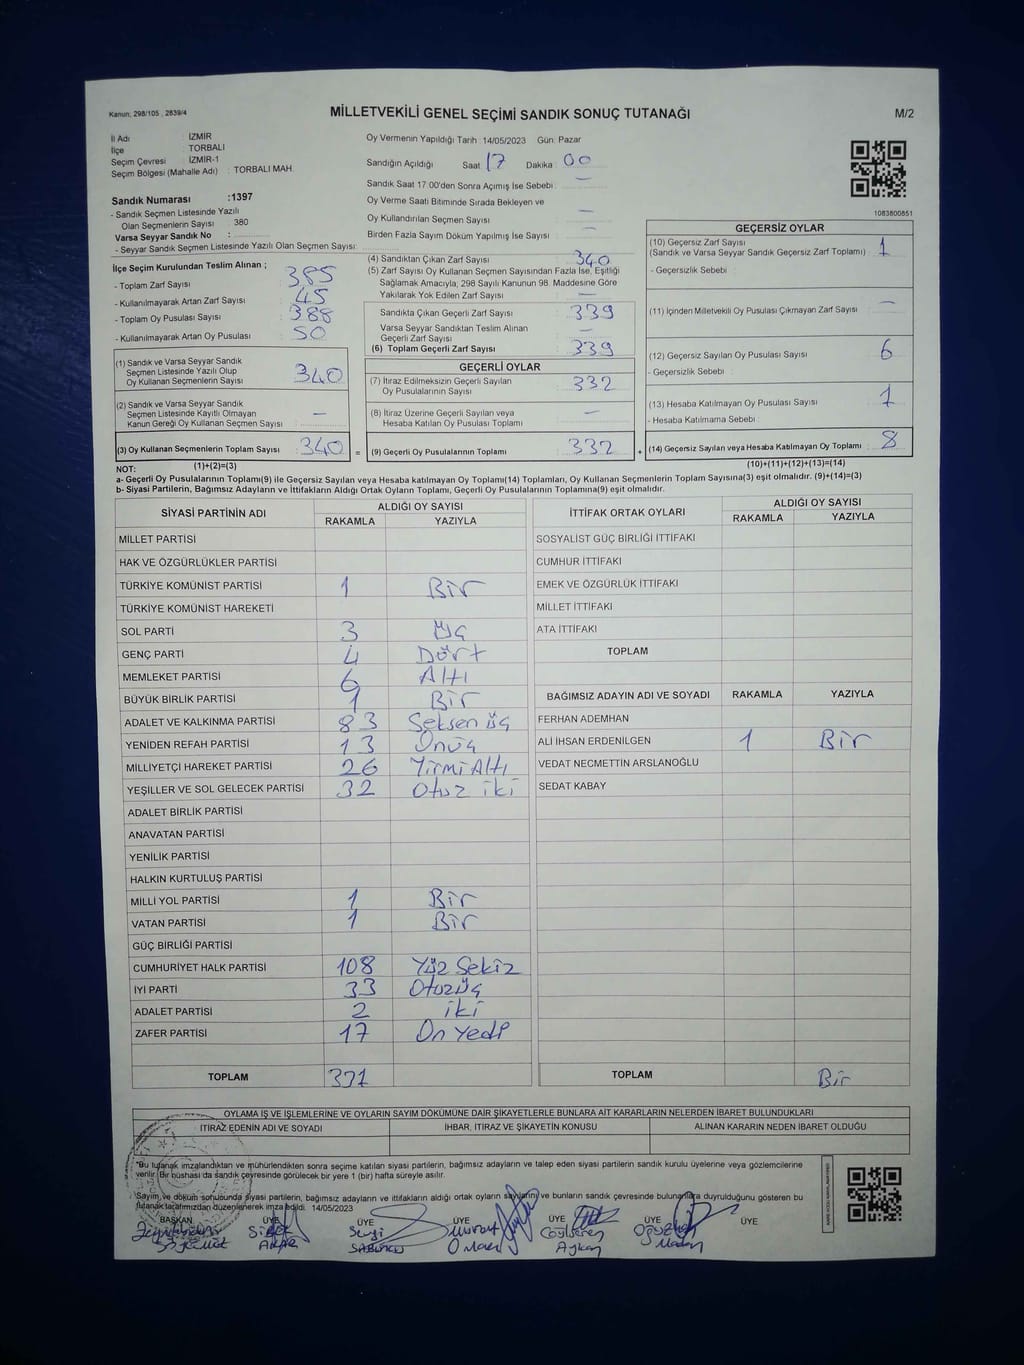 Kanun; 298/105 , 2839/4
MİLLETVEKİLİ GENEL SEÇİMİ SANDIK SONUÇ TUTANAĞI
M/2
İl Adı : İZMİR
İlçe : TORBALI
Seçim Çevresi : İZMİR-1
Seçim Bölgesi (Mahalle Adı) : TORBALI MAH.
Sandık Numarası :1397
- Sandık Seçmen Listesinde Yazılı
Olan Seçmenlerin Sayısı : 380
Varsa Seyyar Sandık No :
- Seyyar Sandık Seçmen Listesinde Yazılı Olan Seçmen Sayısı:
Oy Vermenin Yapıldığı Tarih :14/05/2023 Gün: Pazar
Sandığın Açıldığı Saat : 17 Dakika : 00
Sandık Saat 17:00'den Sonra Açımış İse Sebebi : —
Oy Verme Saati Bitiminde Sırada Bekleyen ve
Oy Kullandırılan Seçmen Sayısı : —
Birden Fazla Sayım Döküm Yapılmış İse Sayısı : —
1083800851
İlçe Seçim Kurulundan Teslim Alınan ;
- Toplam Zarf Sayısı : 385
- Kullanılmayarak Artan Zarf Sayısı : 45
- Toplam Oy Pusulası Sayısı : 388
- Kullanılmayarak Artan Oy Pusulası : 50
(1) Sandık ve Varsa Seyyar Sandık
Seçmen Listesinde Yazılı Olup
Oy Kullanan Seçmenlerin Sayısı : 340
(2) Sandık ve Varsa Seyyar Sandık
Seçmen Listesinde Kayıtlı Olmayan
Kanun Gereği Oy Kullanan Seçmen Sayısı : —
(3) Oy Kullanan Seçmenlerin Toplam Sayısı : 340 =
(1)+(2)=(3)
(4) Sandıktan Çıkan Zarf Sayısı : 340
(5) Zarf Sayısı Oy Kullanan Seçmen Sayısından Fazla İse, Eşitliği
Sağlamak Amacıyla; 298 Sayılı Kanunun 98. Maddesine Göre
Yakılarak Yok Edilen Zarf Sayısı : —
Sandıkta Çıkan Geçerli Zarf Sayısı : 339
Varsa Seyyar Sandıktan Teslim Alınan
Geçerli Zarf Sayısı : —
(6) Toplam Geçerli Zarf Sayısı : 339
GEÇERLİ OYLAR
(7) İtiraz Edilmeksizin Geçerli Sayılan
Oy Pusulalarının Sayısı : 332
(8) İtiraz Üzerine Geçerli Sayılan veya
Hesaba Katılan Oy Pusulası Toplamı : —
(9) Geçerli Oy Pusulalarının Toplamı : 332 +
GEÇERSİZ OYLAR
(10) Geçersiz Zarf Sayısı
(Sandık ve Varsa Seyyar Sandık Geçersiz Zarf Toplamı) : 1
- Geçersizlik Sebebi :
(11) İçinden Milletvekili Oy Pusulası Çıkmayan Zarf Sayısı : —
(12) Geçersiz Sayılan Oy Pusulası Sayısı : 6
- Geçersizlik Sebebi :
(13) Hesaba Katılmayan Oy Pusulası Sayısı : 1
- Hesaba Katılmama Sebebi :
(14) Geçersiz Sayılan veya Hesaba Katılmayan Oy Toplamı : 8
(10)+(11)+(12)+(13)=(14)
NOT:
a- Geçerli Oy Pusulalarının Toplamı(9) ile Geçersiz Sayılan veya Hesaba katılmayan Oy Toplamı(14) Toplamları, Oy Kullanan Seçmenlerin Toplam Sayısına(3) eşit olmalıdır. (9)+(14)=(3)
b- Siyasi Partilerin, Bağımsız Adayların ve İttifakların Aldığı Ortak Oyların Toplamı, Geçerli Oy Pusulalarının Toplamına(9) eşit olmalıdır.
SİYASİ PARTİNİN ADI
ALDIĞI OY SAYISI
RAKAMLA YAZIYLA
MİLLET PARTİSİ
HAK VE ÖZGÜRLÜKLER PARTİSİ
TÜRKİYE KOMÜNİST PARTİSİ 1 Bir
TÜRKİYE KOMÜNİST HAREKETİ
SOL PARTİ 3 Üç
GENÇ PARTİ 4 Dört
MEMLEKET PARTİSİ 6 Altı
BÜYÜK BİRLİK PARTİSİ 1 Bir
ADALET VE KALKINMA PARTİSİ 83 Seksen üç
YENİDEN REFAH PARTİSİ 13 Onüç
MİLLİYETÇİ HAREKET PARTİSİ 26 Yirmi Altı
YEŞİLLER VE SOL GELECEK PARTİSİ 32 Otuz iki
ADALET BİRLİK PARTİSİ
ANAVATAN PARTİSİ
YENİLİK PARTİSİ
HALKIN KURTULUŞ PARTİSİ
MİLLİ YOL PARTİSİ 1 Bir
VATAN PARTİSİ 1 Bir
GÜÇ BİRLİĞİ PARTİSİ
CUMHURİYET HALK PARTİSİ 108 Yüz Sekiz
İYİ PARTİ 33 Otuzüç
ADALET PARTİSİ 2 iki
ZAFER PARTİSİ 17 On Yedi
TOPLAM 331
İTTİFAK ORTAK OYLARI
ALDIĞI OY SAYISI
RAKAMLA YAZIYLA
SOSYALİST GÜÇ BİRLİĞİ İTTİFAKI
CUMHUR İTTİFAKI
EMEK VE ÖZGÜRLÜK İTTİFAKI
MİLLET İTTİFAKI
ATA İTTİFAKI
TOPLAM
BAĞIMSIZ ADAYIN ADI VE SOYADI RAKAMLA YAZIYLA
FERHAN ADEMHAN
ALİ İHSAN ERDENİLGEN 1 Bir
VEDAT NECMETTİN ARSLANOĞLU
SEDAT KABAY
TOPLAM Bir
OYLAMA İŞ VE İŞLEMLERİNE VE OYLARIN SAYIM DÖKÜMÜNE DAİR ŞİKAYETLERLE BUNLARA AİT KARARLARIN NELERDEN İBARET BULUNDUKLARI
İTİRAZ EDENİN ADI VE SOYADI İHBAR, İTİRAZ VE ŞİKAYETİN KONUSU ALINAN KARARIN NEDEN İBARET OLDUĞU
*Bu tutanak imzalandıktan ve mühürlendikten sonra seçime katılan siyasi partilerin, bağımsız adayların ve talep eden siyasi partilerin sandık kurulu üyelerine veya gözlemcilerine
verilir. Bir nüshası da sandık çevresinde görülecek bir yere 1 (bir) hafta süreyle asılır.
Sayım ve döküm sonucunda siyasi partilerin, bağımsız adayların ve ittifakların aldığı ortak oyların sayılarını ve bunların sandık çevresinde bulunanlara duyurulduğunu gösteren bu
tutanak tarafımızdan düzenlenerek imza edildi. 14/05/2023
BAŞKAN ÜYE ÜYE ÜYE ÜYE ÜYE ÜYE
Sevgi Murat Oğuzhan